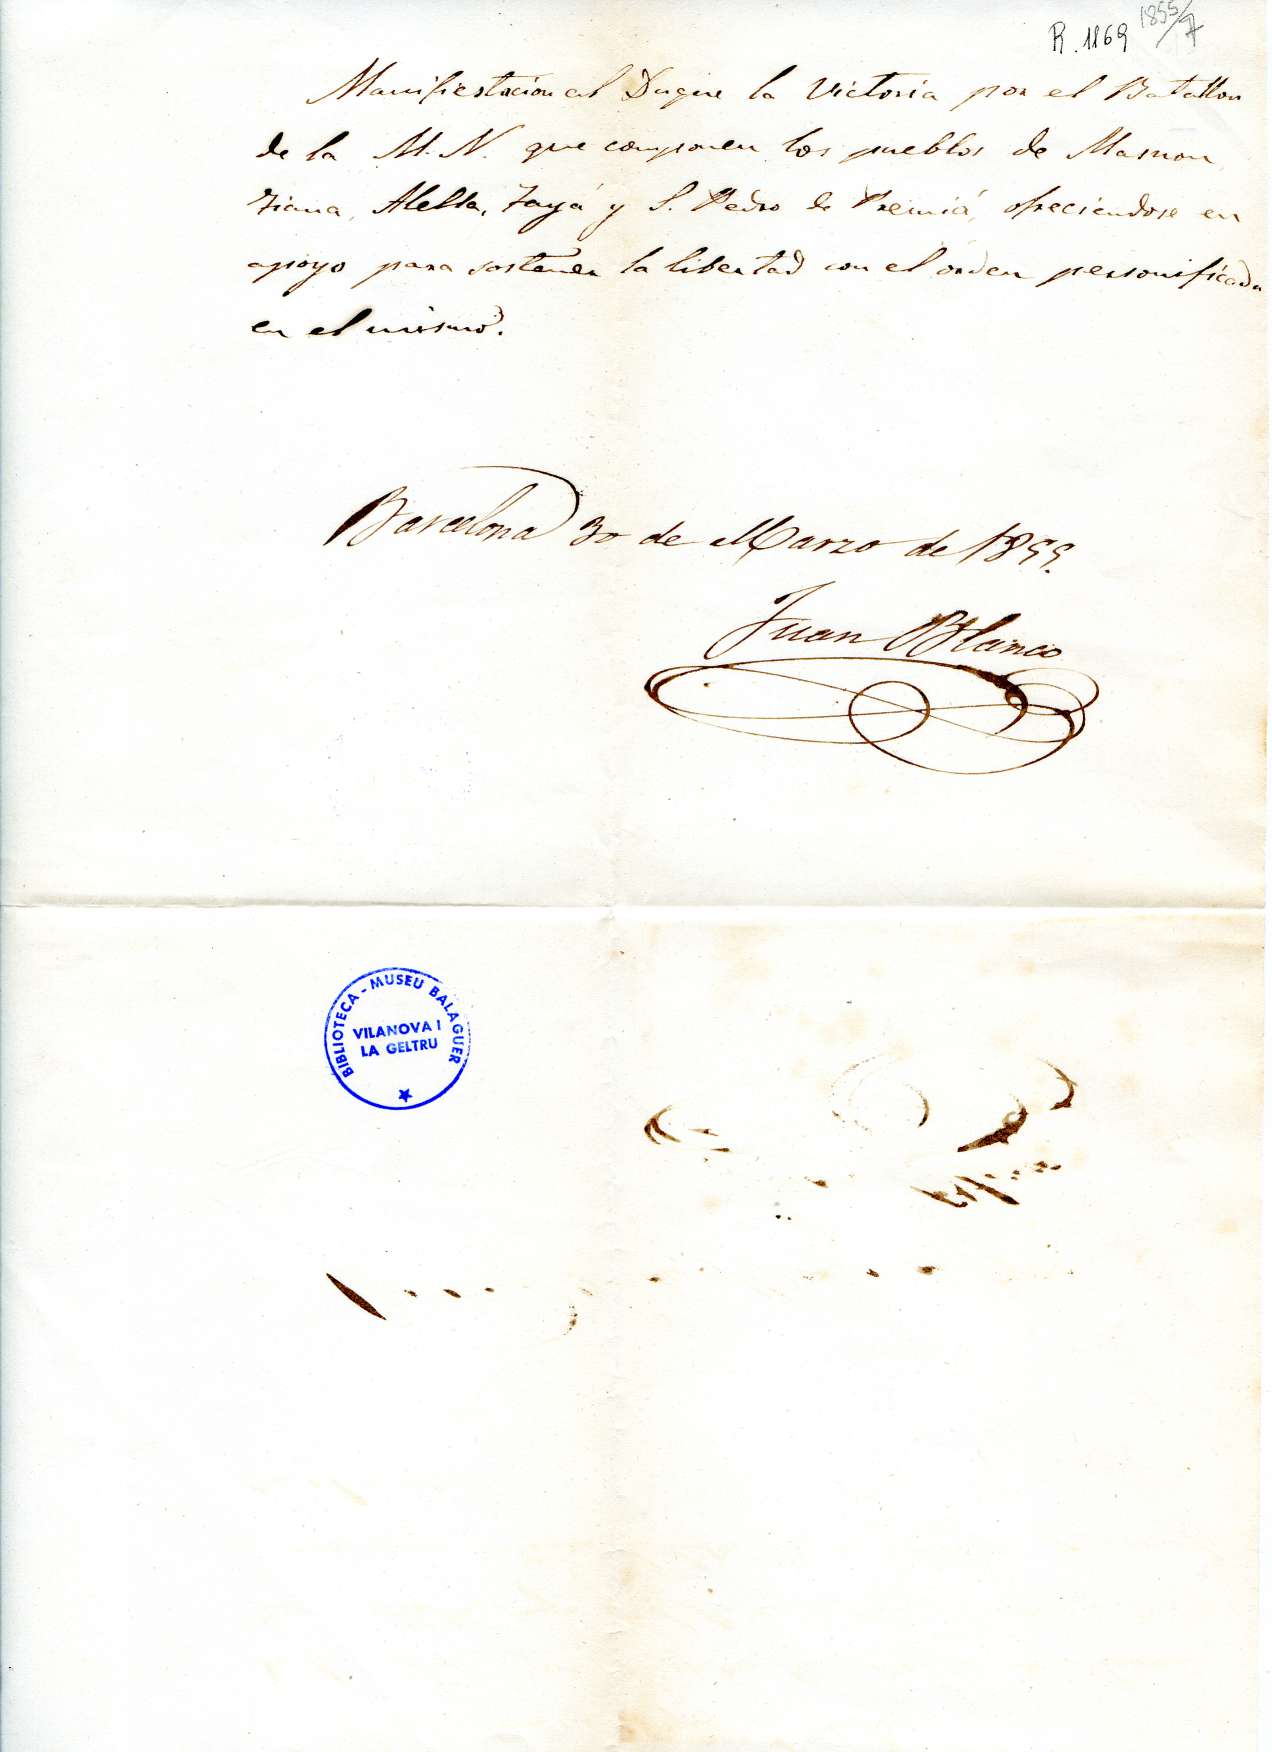 R. 1169 1855/7
Manifestacion al Duque la Victoria por el Batallon
de la M. N. que componen los pueblos de Masnou,
Tiana, Alella, Tayá y S. Pedro de Premiá, ofreciendose en
apoyo para sostener la libertad con el orden personificada
en el mismo.
Barcelona 30 de Marzo de 1855.
Juan Blanco
BIBLIOTECA - MUSEU BALAGUER
VILANOVA I
LA GELTRU